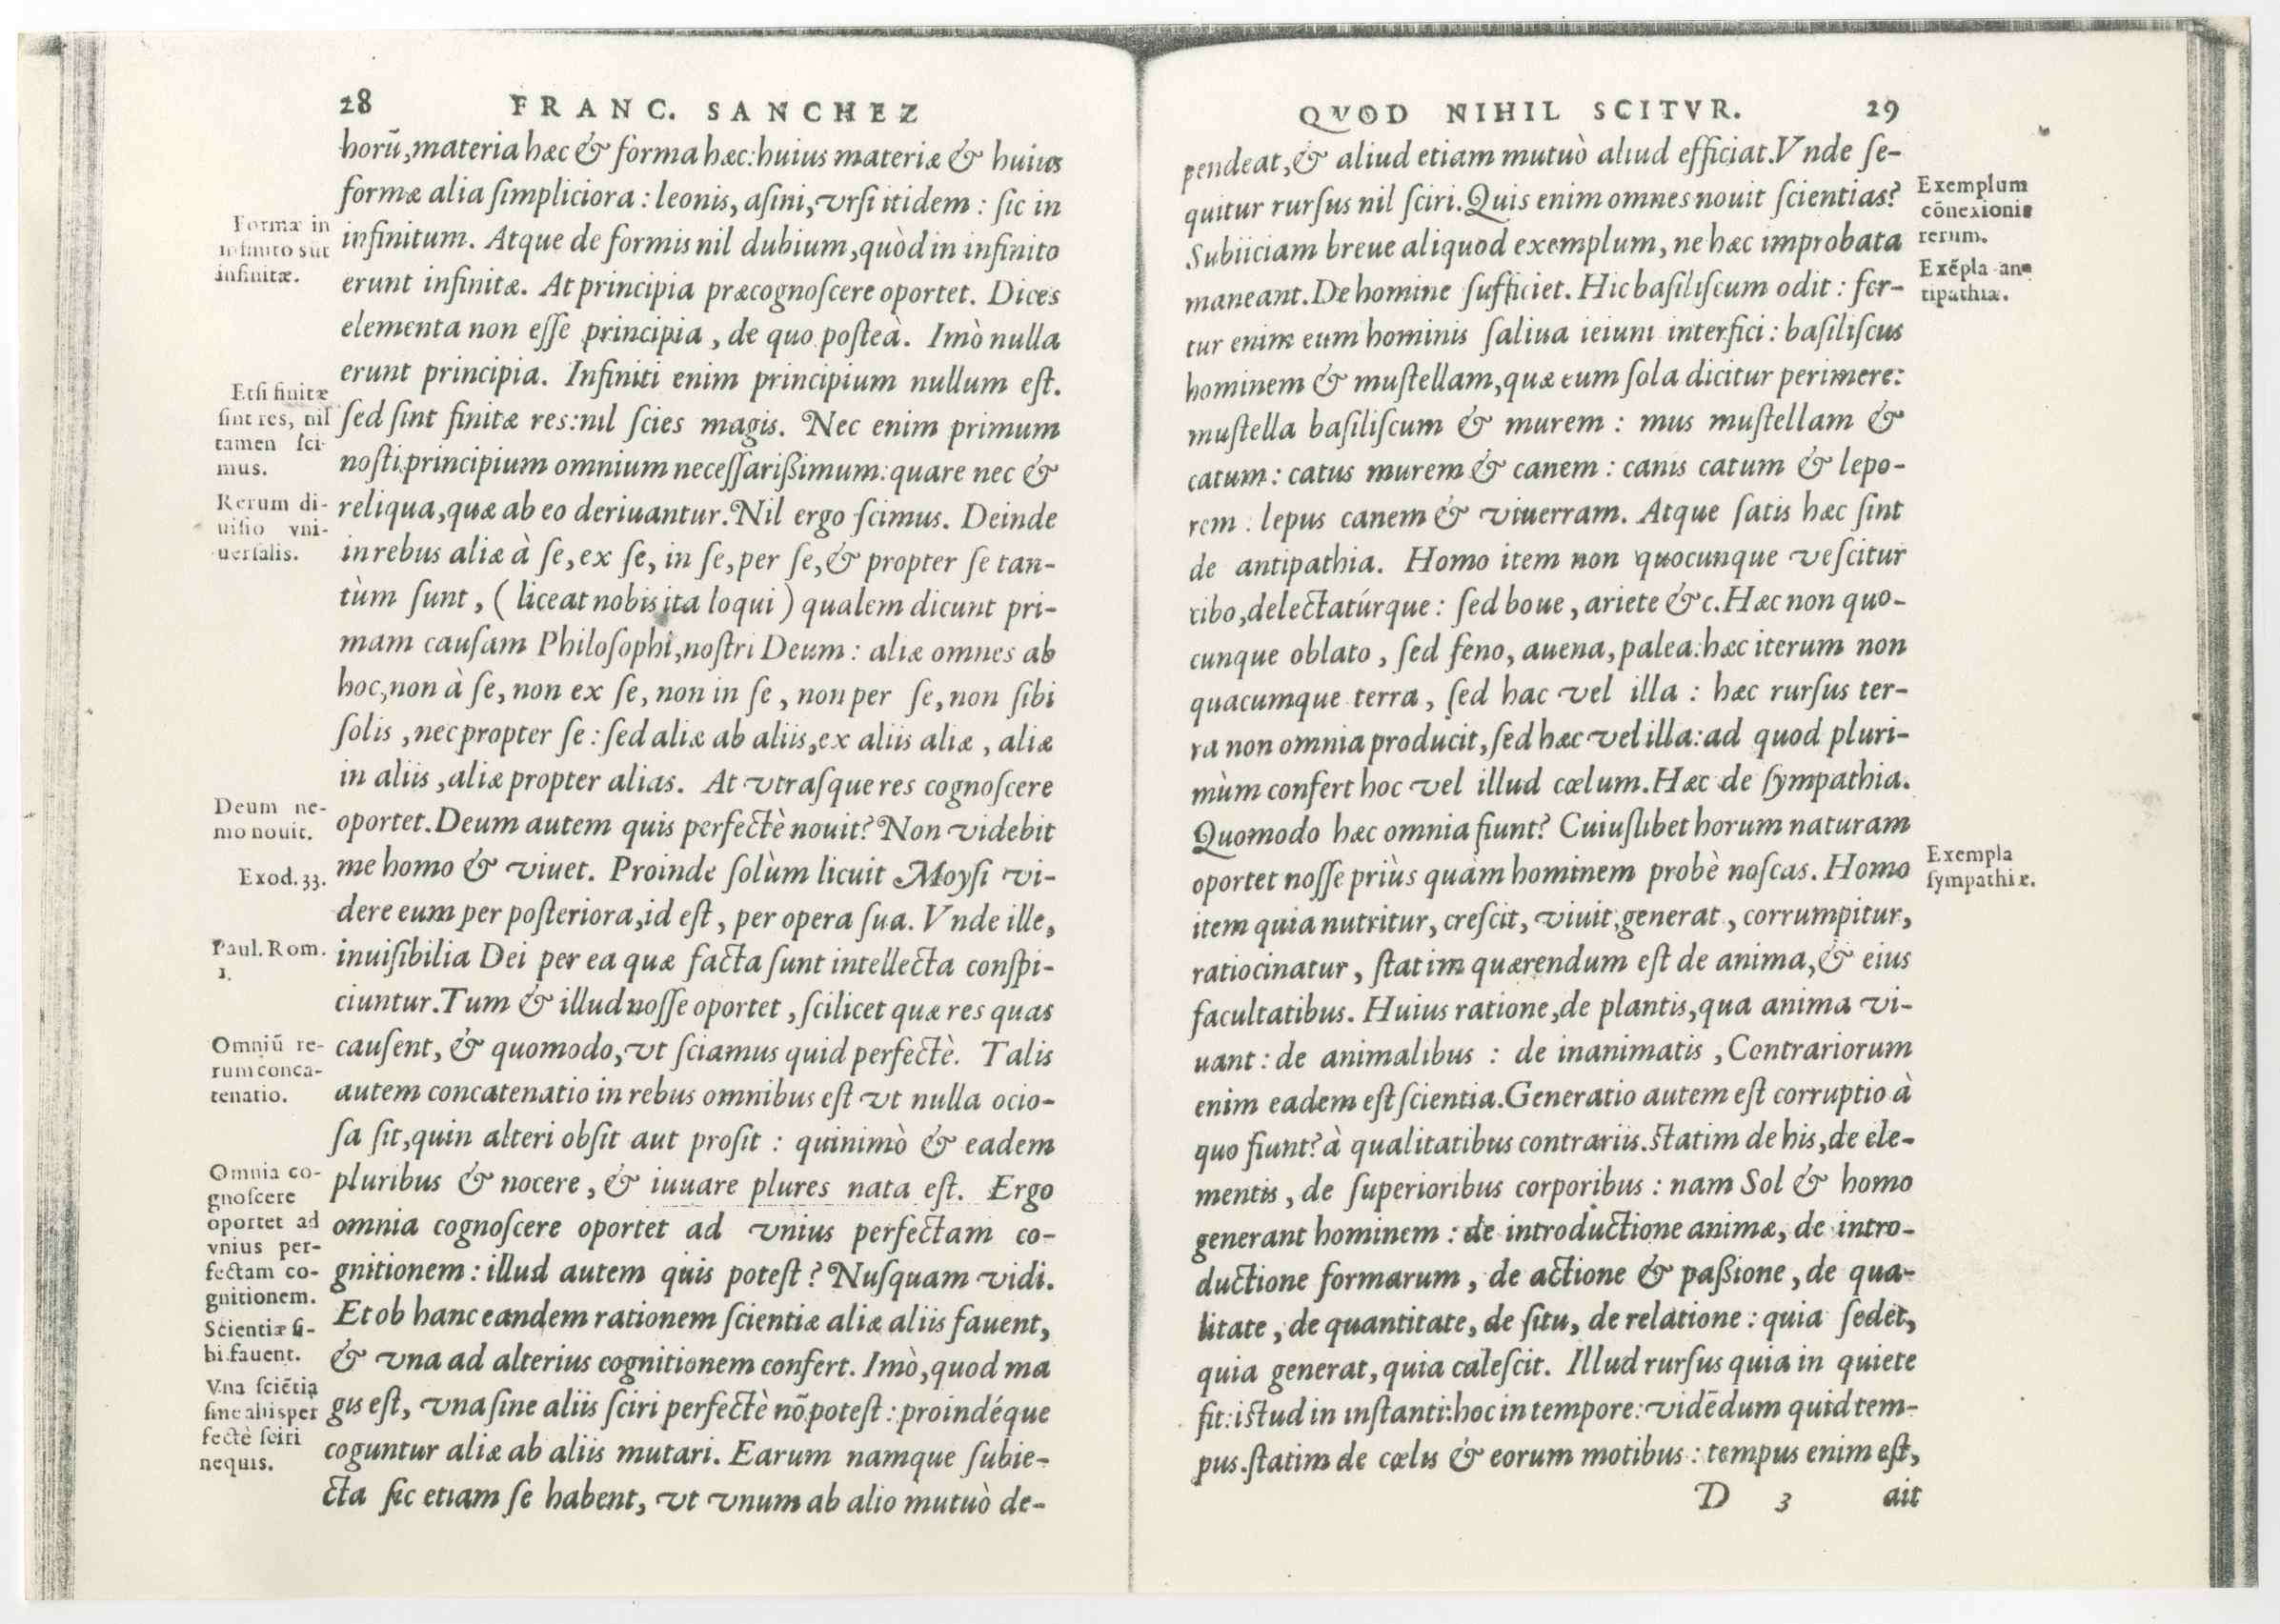 28 FRANC. SANCHEZ
horũ, materia hæc & forma hæc: huius materiæ & huius
formæ alia ſimpliciora: leonis, aſini, vrſi itidem: ſic in
infinitum. Atque de formis nil dubium, quòd in infinito
erunt infinitæ. At principia præcognoſcere oportet. Dices
elementa non eſſe principia, de quo poſteà. Imò nulla
erunt principia. Infiniti enim principium nullum eſt.
ſed ſint finitæ res: nil ſcies magis. Nec enim primum
noſti principium omnium neceſſarißimum: quare nec &
reliqua, quæ ab eo deriuantur. Nil ergo ſcimus. Deinde
in rebus aliæ à ſe, ex ſe, in ſe, per ſe, & propter ſe tan-
tùm ſunt, (liceat nobis ita loqui) qualem dicunt pri-
mam cauſam Philoſophi, noſtri Deum: aliæ omnes ab
hoc, non à ſe, non ex ſe, non in ſe, non per ſe, non ſibi
ſolis, nec propter ſe: ſed aliæ ab aliis, ex aliis aliæ, aliæ
in aliis, aliæ propter alias. At vtraſque res cognoſcere
oportet. Deum autem quis perfectè nouit? Non videbit
me homo & viuet. Proinde ſolùm licuit Moyſi vi-
dere eum per poſteriora, id eſt, per opera ſua. Vnde ille,
inuiſibilia Dei per ea quæ facta ſunt intellecta conſpi-
ciuntur. Tum & illud noſſe oportet, ſcilicet quæ res quas
cauſent, & quomodo, vt ſciamus quid perfectè. Talis
autem concatenatio in rebus omnibus eſt vt nulla ocio-
ſa ſit, quin alteri obſit aut proſit: quinimò & eadem
pluribus & nocere, & iuuare plures nata eſt. Ergo
omnia cognoſcere oportet ad vnius perfectam co-
gnitionem: illud autem quis poteſt? Nuſquam vidi.
Et ob hanc eandem rationem ſcientiæ aliæ aliis fauent,
& vna ad alterius cognitionem confert. Imò, quod ma
gis eſt, vna ſine aliis ſciri perfectè nõ poteſt: proindéque
coguntur aliæ ab aliis mutari. Earum namque ſubie-
cta ſic etiam ſe habent, vt vnum ab alio mutuò de-
Formæ in
infinito sūt
infinitæ.
Etſi finitæ
ſint res, nil
tamen ſci-
mus.
Rerum di-
uiſio vni-
uerſalis.
Deum ne-
mo nouit.
Exod. 33.
Paul. Rom.
1.
Omniũ re-
rum conca-
tenatio.
Omnia co-
gnoſcere
oportet ad
vnius per-
fectam co-
gnitionem.
Scientiæ ſi-
bi fauent.
Vna ſciẽtia
ſine aliis per
fectè ſciri
nequis.
QVOD NIHIL SCITVR. 29
pendeat, & aliud etiam mutuò aliud efficiat. Vnde ſe-
quitur rurſus nil ſciri. Quis enim omnes nouit ſcientias?
Subiiciam breue aliquod exemplum, ne hæc improbata
maneant. De homine ſufficiet. Hic baſiliſcum odit: fer-
tur enim eum hominis ſaliua ieiuni interfici: baſiliſcus
hominem & muſtellam, quæ eum ſola dicitur perimere:
muſtella baſiliſcum & murem: mus muſtellam &
catum: catus murem & canem: canis catum & lepo-
rem: lepus canem & viuerram. Atque ſatis hæc ſint
de antipathia. Homo item non quocunque veſcitur
cibo, delectatúrque: ſed boue, ariete &c. Hæc non quo-
cunque oblato, ſed feno, auena, palea: hæc iterum non
quacumque terra, ſed hac vel illa: hæc rurſus ter-
ra non omnia producit, ſed hæc vel illa: ad quod pluri-
mùm confert hoc vel illud cœlum. Hæc de ſympathia.
Quomodo hæc omnia fiunt? Cuiuſlibet horum naturam
oportet noſſe priùs quàm hominem probè noſcas. Homo
item quia nutritur, creſcit, viuit, generat, corrumpitur,
ratiocinatur, ſtatim quærendum eſt de anima, & eius
facultatibus. Huius ratione, de plantis, qua anima vi-
uant: de animalibus: de inanimatis, Contrariorum
enim eadem eſt ſcientia. Generatio autem eſt corruptio à
quo fiunt? à qualitatibus contrariis. ſtatim de his, de ele-
mentis, de ſuperioribus corporibus: nam Sol & homo
generant hominem: de introductione animæ, de intro-
ductione formarum, de actione & paßione, de qua-
litate, de quantitate, de ſitu, de relatione: quia ſedet,
quia generat, quia caleſcit. Illud rurſus quia in quiete
fit: iſtud in inſtanti: hoc in tempore: vidẽdum quid tem-
pus. ſtatim de cœlis & eorum motibus: tempus enim eſt,
D 3 ait
Exemplum
cõnexionis
rerum.
Exẽpla an-
tipathiæ.
Exempla
ſympathiæ.